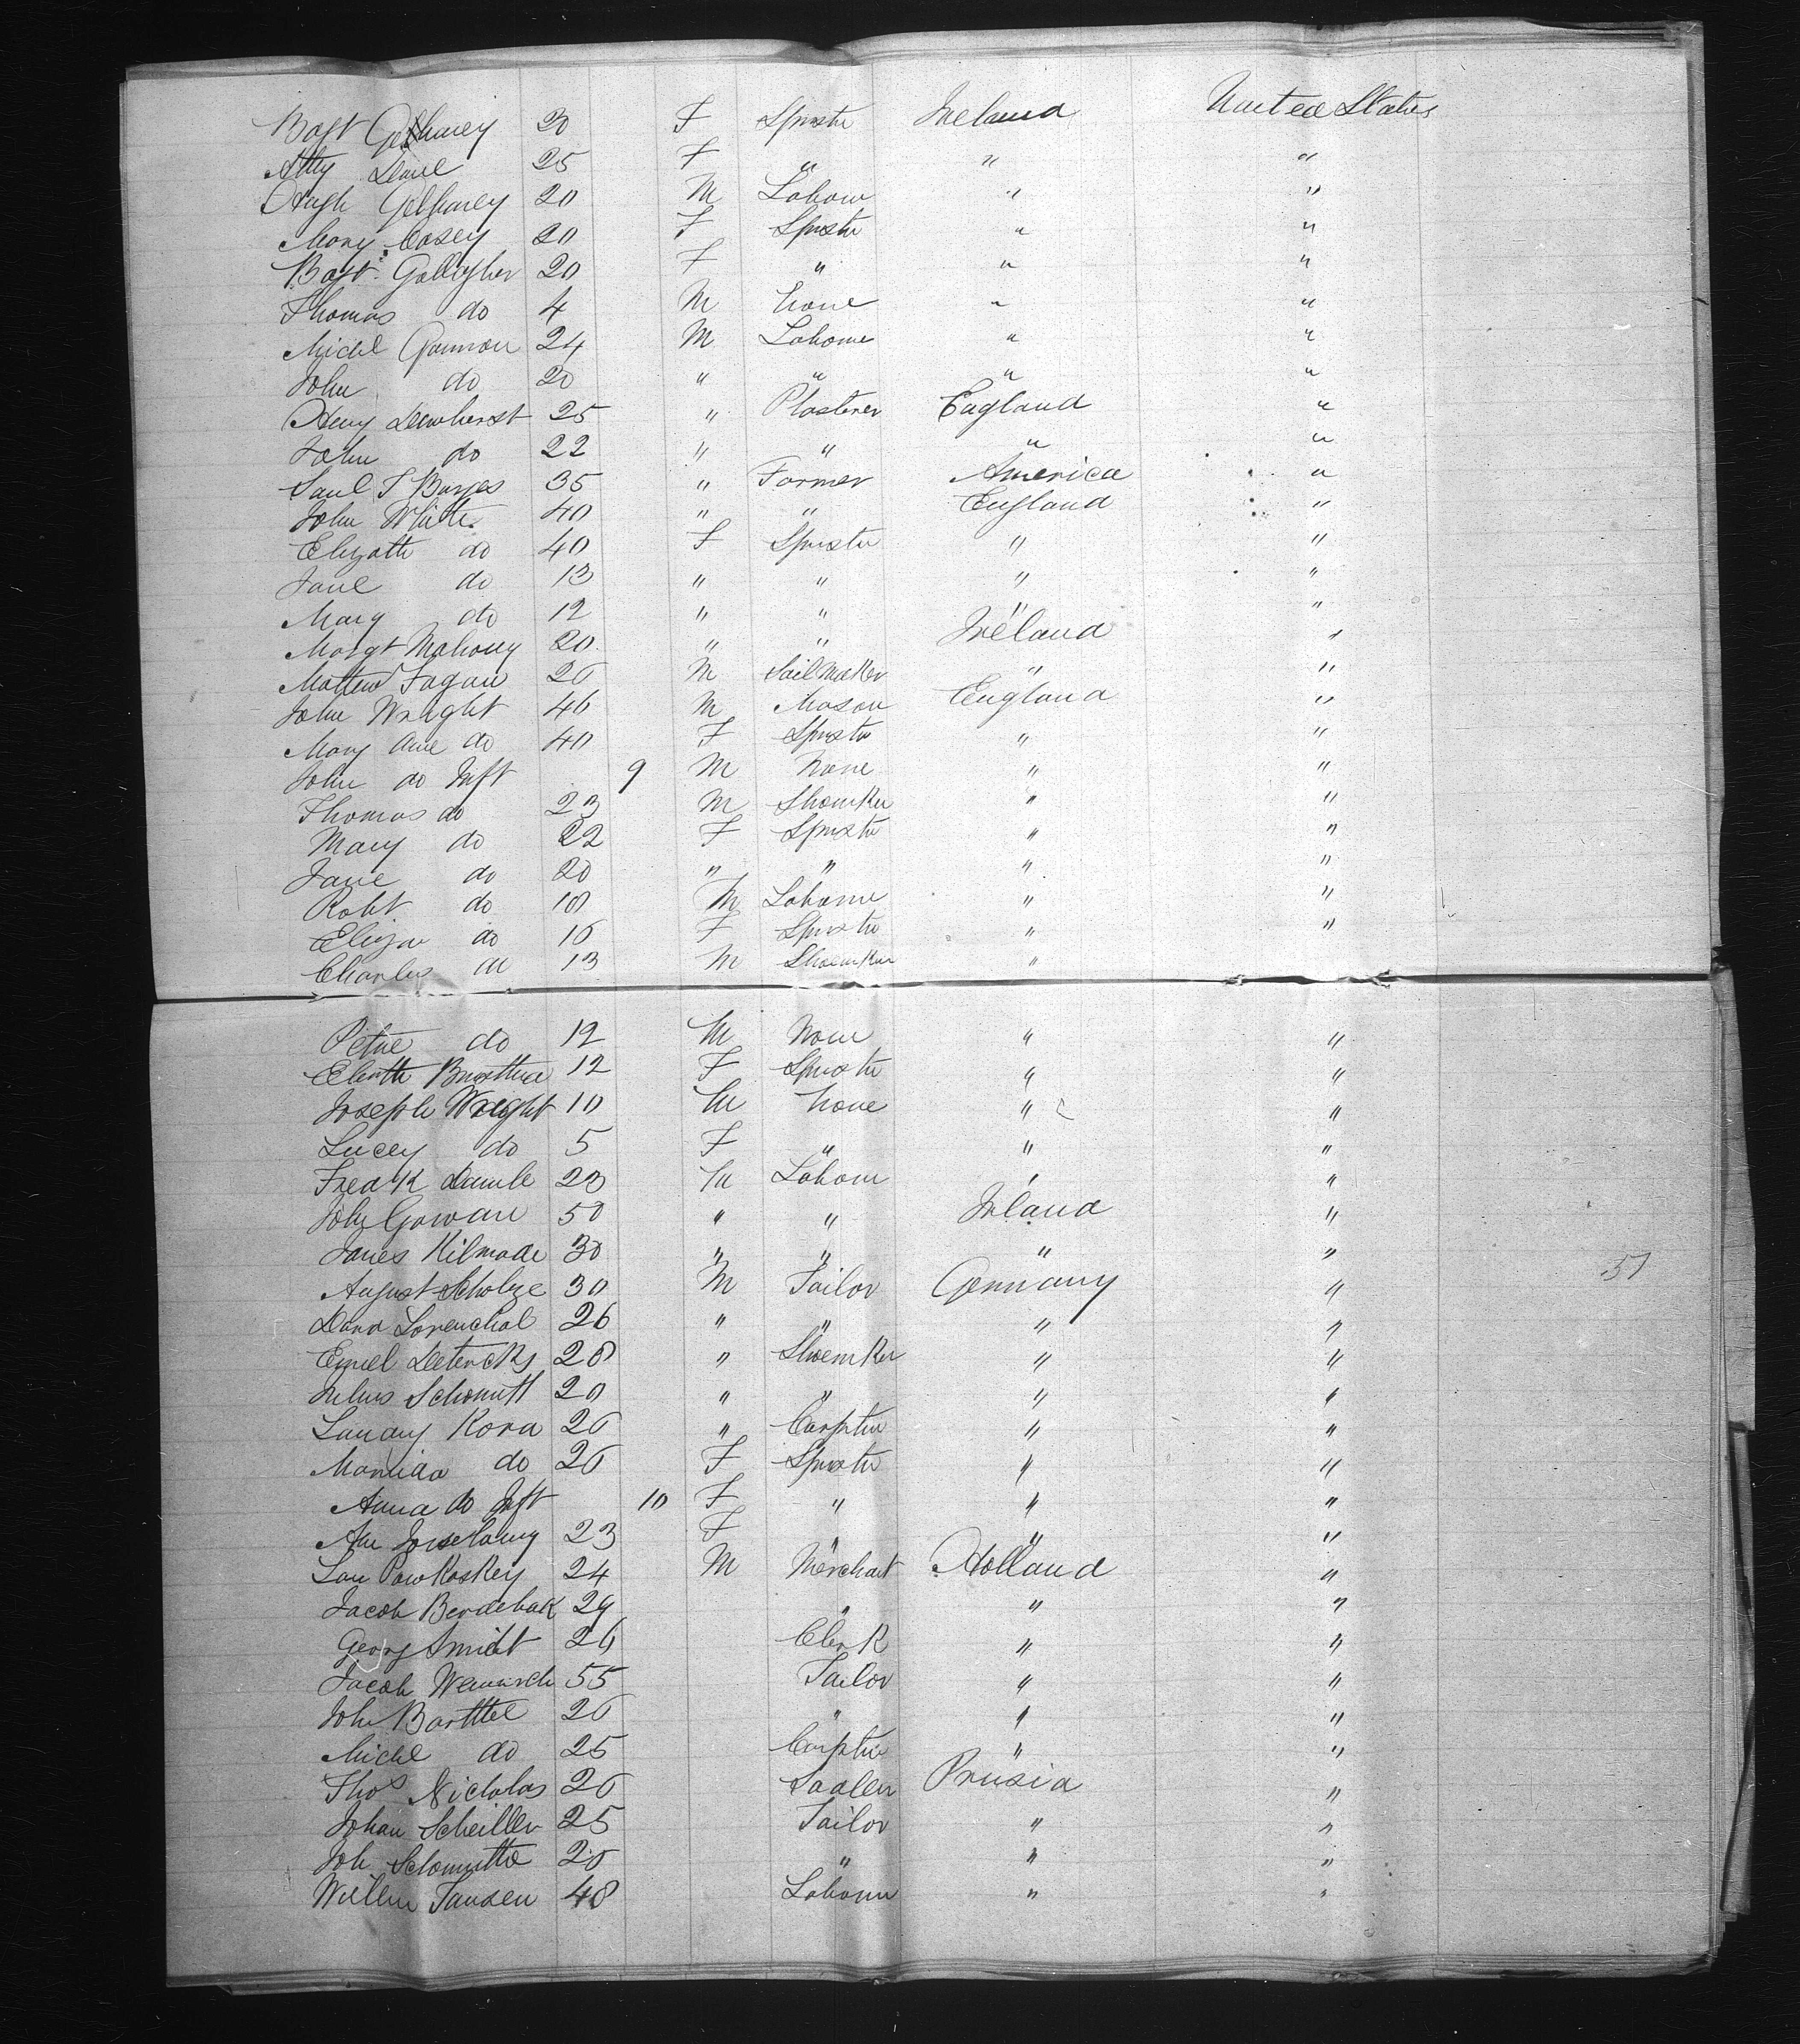 Bagt Gelhuey 20 F Spinster Ireland United States
Atty Dane 25 F " " "
Hugh Gelhuey 20 M Labour " "
Mary Casey 20 F Spinster " "
Bagt Gallagher 20 F " " "
Thomas do 4 M None " "
Michl Gannon 24 M Labourer " "
John do 20 " " " "
Henry Dewherst 25 " Plasterer England "
John do 22 " " " "
Saul T 35 " Farmer America "
John White 40 " " England "
Elizath do 40 F Spinster " "
Jane do 13 " " " "
Mary do 12 " " " "
Margt Mahony 20 " " Ireland "
Mattew Fagan 26 M Sailmaker " "
John Wright 46 M Mason England "
Mary Ane do 40 F Spinster " "
John do Inft 9 M None " "
Thomas do 23 M Shomker " "
Mary do 22 F Spinster " "
Jane do 20 " " " "
Robt do 18 M Labourer " "
Eliza do 16 F Spinster " "
Charles do 13 M Shoemker "
Peter do 12 M None " "
12 F Spinster " "
Joseph Wright 10 M None " "
Lucey do 5 F " " "
Fredk Dumle 23 M Labour " "
John Gowan 50 " " Irland "
James Kilmade 30 " " " "
August Scholze 30 M Tailor Germany "
26 " " " "
Emiel Detericks 28 " Shoemker " "
Julius Schomitt 20 " " " "
Kora 26 " Carpter " "
do 26 F Spinster " "
Anna do Inft 10 F " " "
23 F " " "
Pawkoskey 24 M Merchant Holland "
Jacob 29 " " "
Georg Smidt 26 Clerk " "
Jacob 55 Tailor " "
John Barttel 26 " " "
Michl do 25 Carpter " "
Thos Nicholas 26 Sadler Prusia "
Johan Scheiller 25 Tailor " "
Joh 25 " " "
Willm Tanden 48 Labourer " "
51